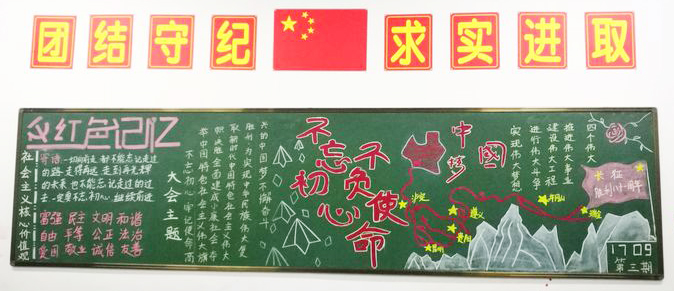 团结守纪
求实进取
红色记忆
社会主义核心价值观
寄语:一切向前走,都不能忘记走过
的路;走得再远、走到再光辉
的未来,也不能忘记走过的过
去
不忘初心,继续前进
富强 民主 文明 和谐
自由 平等 公正 法治
爱国 敬业 诚信 友善
大会主题
不忘初心,牢记使命,高
举中国特色社会主义伟大旗
帜,决胜全面建成小康社会,夺
取新时代中国特色社会主义伟大
胜利,为实现中华民族伟大复
兴的中国梦不懈奋斗
不忘初心
不负使命
中國
梦
四个伟大
推进伟大事业
建设伟大工程
进行伟大斗争
实现伟大梦想
遵义
瑞金
1709
第三期